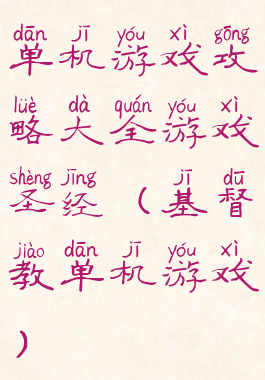 dān jī yóu xì gōng
单机游戏攻
lüè dà quán yóu xì
略大全游戏
shèng jīng jī dū
圣经（基督
jiào dān jī yóu xì
教单机游戏
）